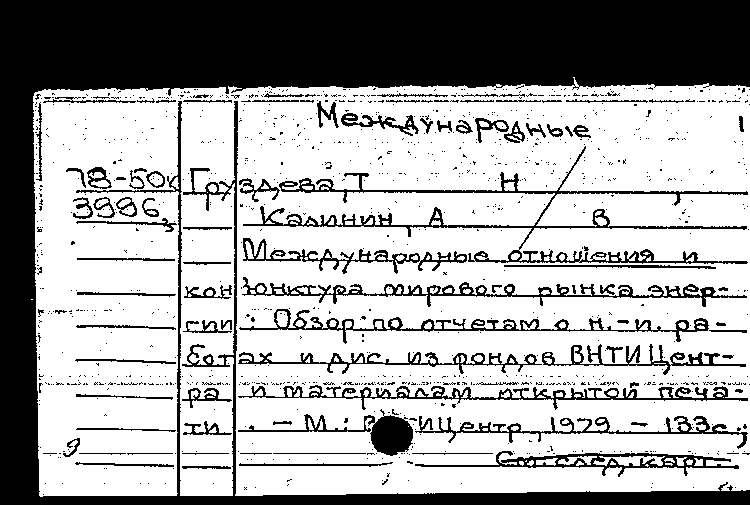 Международные 1
78-50к Груздева, Т Н ,
3996 Калинин, А В
Международные отношения и
конъюнктура мирового рынка энер-
гии : Обзор по отчетам о н.-и. ра-
ботах и дис. из фондов ВНТИЦент-
ра и материалам открытой печа-
ти . - М.: ВНТИЦентр, 1979. - 133с.;
9 См. след. карт.